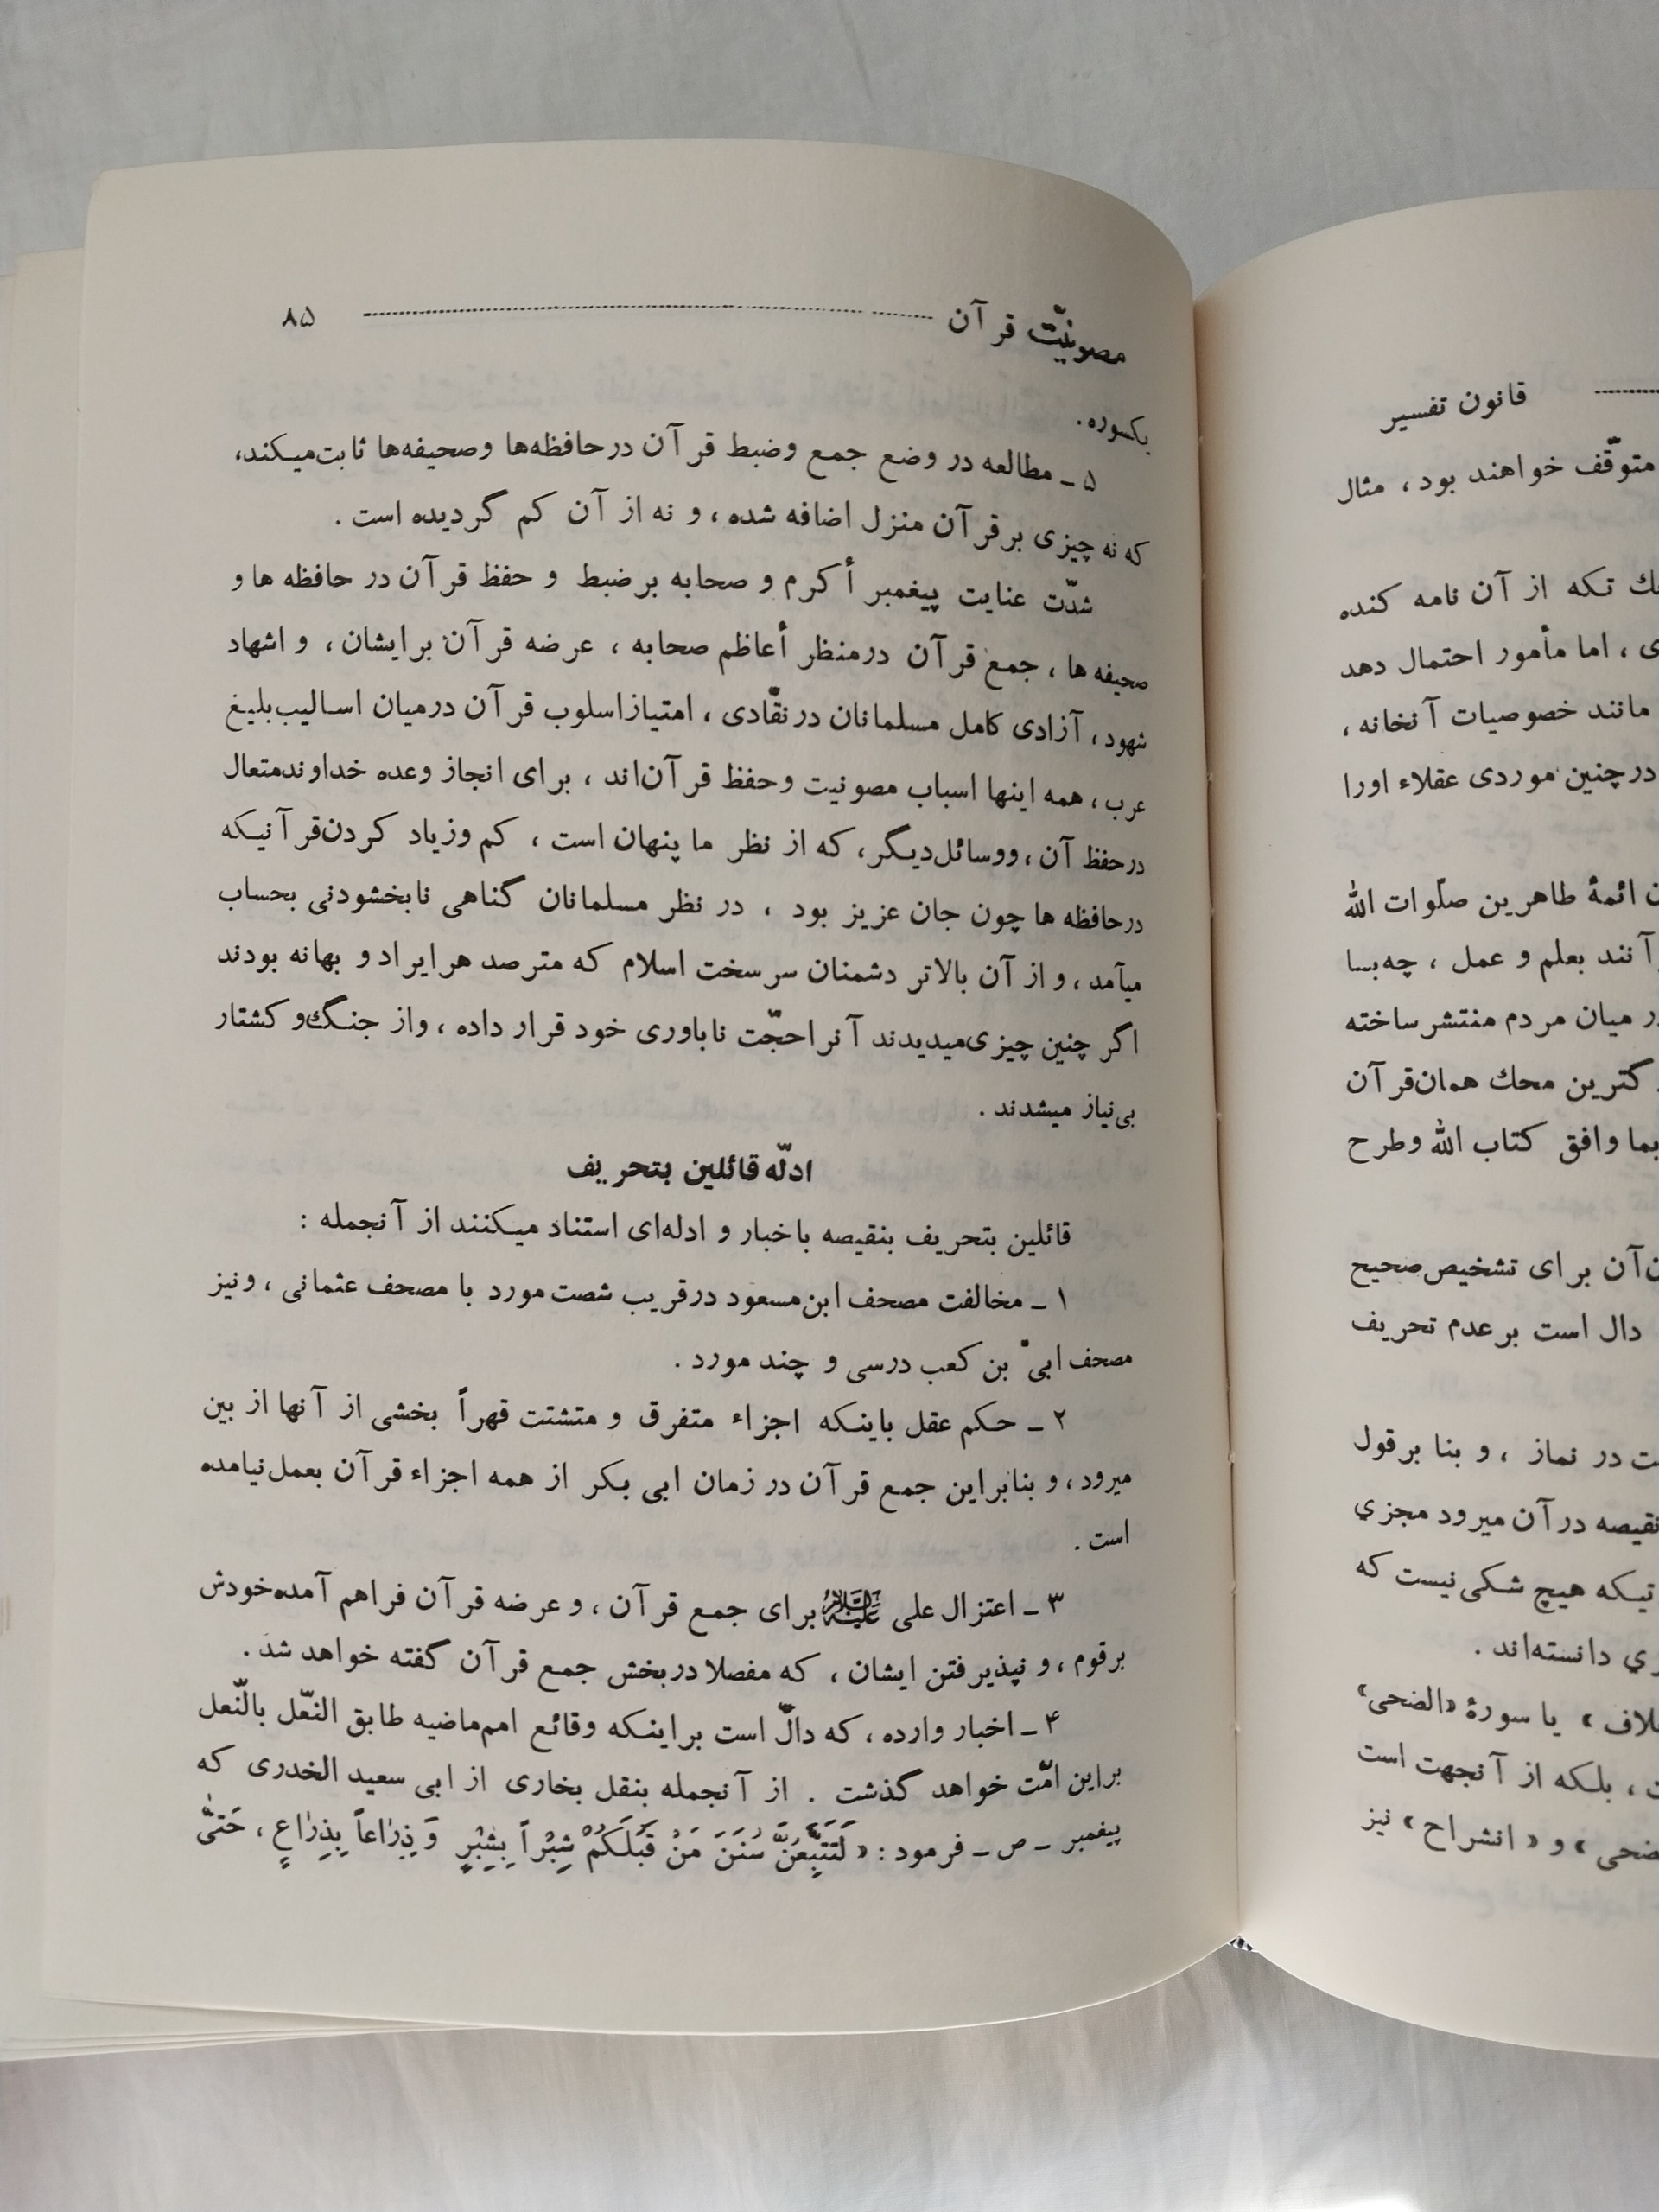 قانون تفسیر
متوقّف خواهند بود ، مثال
تکه از آن نامه کنده
، اما مأمور احتمال دهد
مانند خصوصیات آنخانه ،
درچنین موردی عقلاء اورا
ائمهٔ طاهرین صلّوات الله
بعلم و عمل ، چه‌بسا
میان مردم منتشرساخته
محك همان‌قرآن
بما وافق کتاب الله وطرح
آن برای تشخیص‌صحیح
دال است برعدم تحریف
در نماز ، و بنا برقول
نقیصه درآن میرود مجزي
هیچ شکی‌نیست که
دانسته‌اند .
» یا سورهٔ «الضحی»
، بلکه از آنجهت است
» و « انشراح » نیز
مصونیّت قرآن ۸۵
یکسوره .
۵ ـ مطالعه در وضع جمع وضبط قرآن درحافظه‌ها وصحیفه‌ها ثابت‌میکند،
که نه چیزی برقرآن منزل اضافه شده ، و نه از آن کم گردیده است .
شدّت عنایت پیغمبر أکرم و صحابه برضبط و حفظ قرآن در حافظه ها و
صحیفه ها ، جمع قرآن درمنظر أعاظم صحابه ، عرضه قرآن برایشان ، و اشهاد
شهود ، آزادی کامل مسلمانان درنقّادی ، امتیازاسلوب قرآن درمیان اسالیب‌بلیغ
عرب ، همه اینها اسباب مصونیت وحفظ قرآن‌اند ، برای انجاز وعده خداوندمتعال
درحفظ آن ، ووسائل‌دیگر، که از نظر ما پنهان است ، کم وزیاد کردن‌قرآنیکه
درحافظه ها چون جان عزیز بود ، در نظر مسلمانان گناهی نابخشودنی بحساب
میآمد ، و از آن بالاتر دشمنان سرسخت اسلام که مترصد هرایراد و بهانه بودند
اگر چنین چیزی‌میدیدند آنراحجّت ناباوری خود قرار داده ، واز جنگ‌و کشتار
بی‌نیاز میشدند .
ادلّه قائلین بتحریف
قائلین بتحریف بنقیصه باخبار و ادله‌ای استناد میکنند از آنجمله :
۱ ـ مخالفت مصحف ابن‌مسعود درقریب شصت‌مورد با مصحف عثمانی ، ونیز
مصحف ابیّ بن کعب درسی و چند مورد .
۲ ـ حکم عقل باینکه اجزاء متفرق و متشتت قهراً بخشی از آنها از بین
میرود ، و بنابراین جمع قرآن در زمان ابی بکر از همه اجزاء قرآن بعمل‌نیامده
است .
۳ ـ اعتزال علی علیه‌السلام برای جمع قرآن ، و عرضه قرآن فراهم آمده‌خودش
برقوم ، و نپذیرفتن ایشان ، که مفصلا دربخش جمع قرآن گفته خواهد شد .
۴ ـ اخبار وارده ، که دالّ است براینکه وقائع امم‌ماضیه طابق النعّل بالنّعل
براین امّت خواهد گذشت . از آنجمله بنقل بخاری از ابی سعید الخدری که
پیغمبر ـ ص ـ فرمود : « لَتَتَّبِعُنَّ سُنَنَ مَنْ قَبْلَكُمْ شِبْراً بِشِبْرٍ وَ ذِرٰاعاً بِذِرٰاعٍ ، حَتّٰى